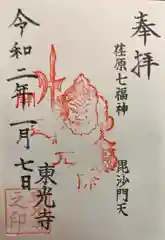 奉拝
荏原七福神
毘沙門天
東光寺
令和二年一月七日
之印